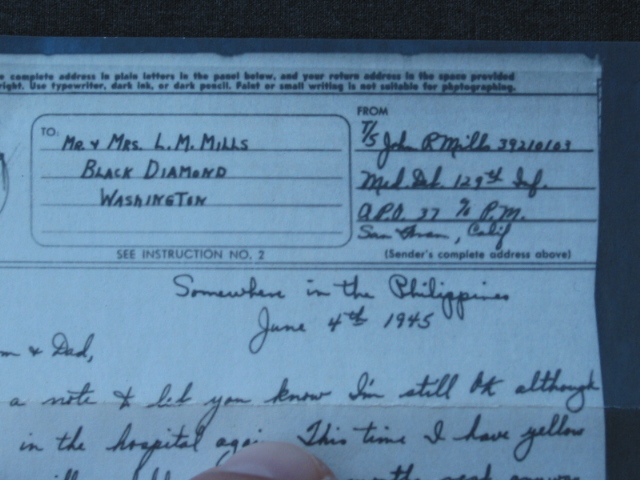 complete address in plain letters in the panel below, and your return address in the space provided
right. Use typewriter, dark ink, or dark pencil. Faint or small writing is not suitable for photographing.
FROM
TO:
Mr. & Mrs. L. M. Mills
Black Diamond
Washington
T/5 John R Mills 39210103
Med. Det. 129th Inf.
A.P.O. 37 % P.M.
San Fran, Calif
SEE INSTRUCTION NO. 2
(Sender's complete address above)
Somewhere in the Philippines
June 4th 1945
m & Dad,
a note & let you know I'm still OK although
in the hospital again This time I have yellow